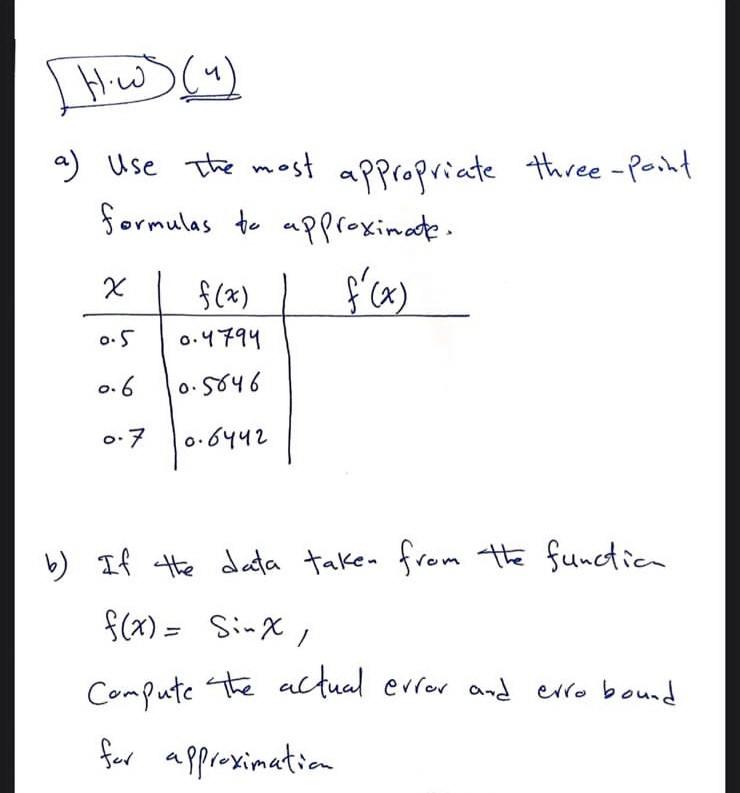 H.W (4)
a) Use the most appropriate three-point
formulas to approximate.
x f(x) f'(x)
0.5 0.4794
0.6 0.5646
0.7 0.6442
b) If the data taken from the function
f(x) = Sin x ,
Compute the actual error and erro bound
for approximation